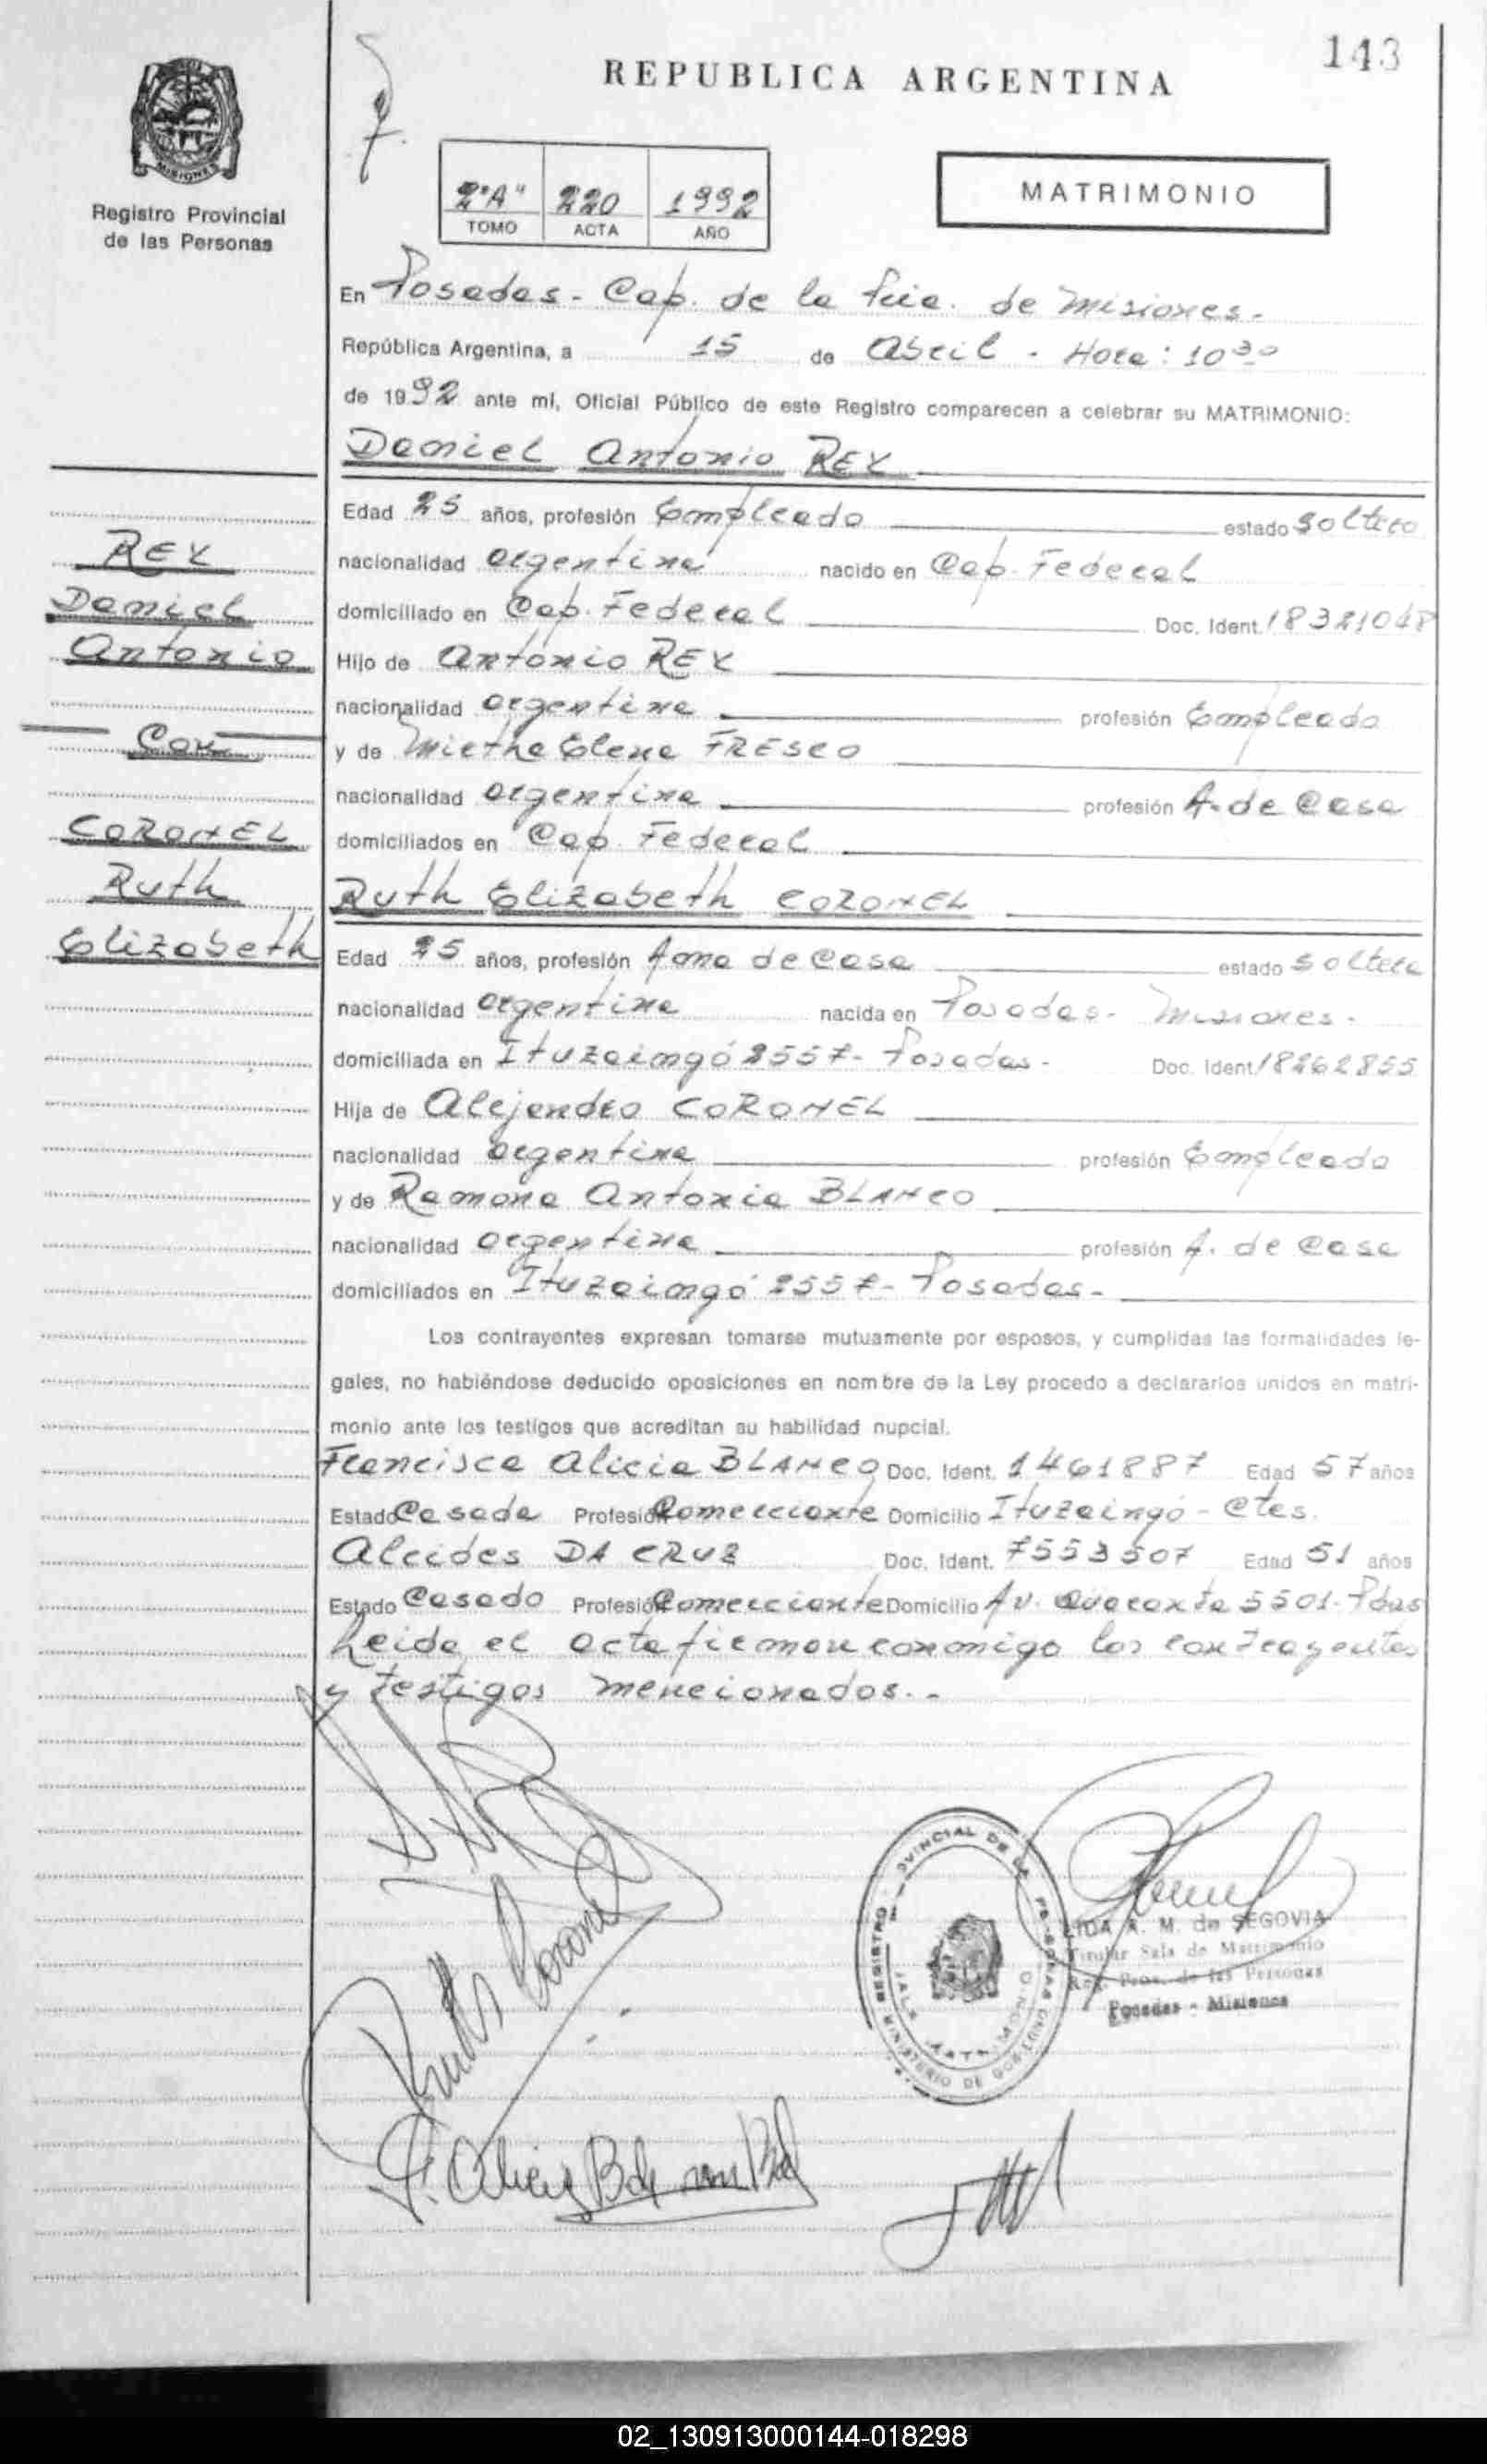 143
REPUBLICA ARGENTINA
MISIONES
Registro Provincial
de las Personas
2"A" 220 1992
TOMO ACTA AÑO
MATRIMONIO
En Posadas - Cap. de la Pcia. de Misiones.-
República Argentina, a 15 de Abril - Hora: 10 30
de 1992 ante mí, Oficial Público de este Registro comparecen a celebrar su MATRIMONIO:
Daniel Antonio REY
Edad 25 años, profesión Empleado estado soltero
REY
nacionalidad argentina nacido en Cap. Federal
Daniel
domiciliado en Cap. Federal Doc. Ident. 18321048
Antonio
Hijo de Antonio REY
nacionalidad argentina profesión Empleado
Con
y de Mirtha Elena FRESCO
nacionalidad argentina profesión A. de Casa
CORONEL
domiciliados en Cap. Federal
Ruth
Ruth Elizabeth CORONEL
Elizabeth
Edad 25 años, profesión Ama de Casa estado soltera
nacionalidad argentina nacida en Posadas - Misiones -
domiciliada en Ituzaingó 2557 - Posadas - Doc. Ident. 18262855
Hija de Alejandro CORONEL
nacionalidad argentina profesión Empleado
y de Ramona Antonia BLANCO
nacionalidad argentina profesión A. de Casa
domiciliados en Ituzaingó 2557 - Posadas -
Los contrayentes expresan tomarse mutuamente por esposos, y cumplidas las formalidades le-
gales, no habiéndose deducido oposiciones en nombre de la Ley procedo a declararlos unidos en matri-
monio ante los testigos que acreditan su habilidad nupcial.
Francisca Alicia BLANCO Doc. Ident. 1461887 Edad 57 años
Estado Casada Profesión Comerciante Domicilio Ituzaingó - Ctes.
Alcides DA CRUZ Doc. Ident. 7553507 Edad 51 años
Estado Casado Profesión Comerciante Domicilio Av. Quaranta 5501 - Pdas
Leida el acta firman conmigo los contrayentes
y testigos mencionados.-
Ruth Coronel
REGISTRO PROVINCIAL DE LAS PERSONAS
SALA MATRIMONIO
MINISTERIO DE GOBIERNO
LIDA R. M. de SEGOVIA
Titular Sala de Matrimonio
Reg. Prov. de las Personas
Posadas - Misiones
02_130913000144-018298